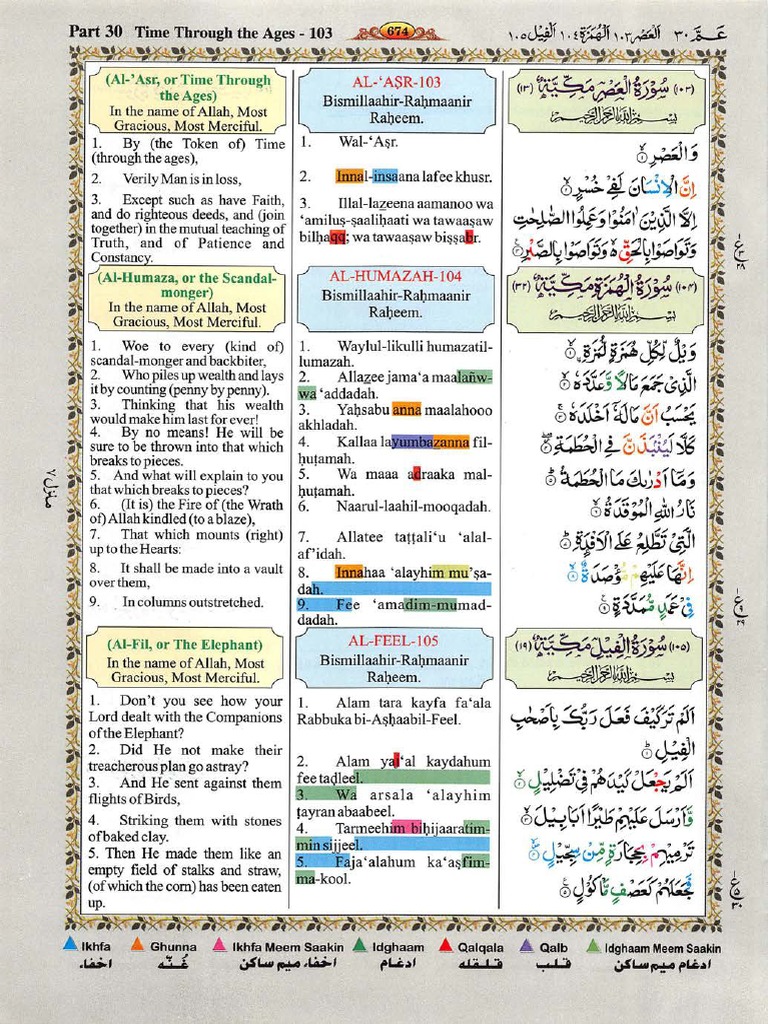 Part 30 Time Through the Ages - 103
674
العصر ١٠٣ الهمزة ١٠٤ الفيل ١٠٥
عـم ٣٠
(Al-’Asr, or Time Through
the Ages)
In the name of Allah, Most
Gracious, Most Merciful.
1. By (the Token of) Time
(through the ages),
2. Verily Man is in loss,
3. Except such as have Faith,
and do righteous deeds, and (join
together) in the mutual teaching of
Truth, and of Patience and
Constancy.
(Al-Humaza, or the Scandal-
monger)
In the name of Allah, Most
Gracious, Most Merciful.
1. Woe to every (kind of)
scandal-monger and backbiter,
2. Who piles up wealth and lays
it by counting (penny by penny).
3. Thinking that his wealth
would make him last for ever!
4. By no means! He will be
sure to be thrown into that which
breaks to pieces.
5. And what will explain to you
that which breaks to pieces?
6. (It is) the Fire of (the Wrath
of) Allah kindled (to a blaze),
7. That which mounts (right)
up to the Hearts:
8. It shall be made into a vault
over them,
9. In columns outstretched.
(Al-Fil, or The Elephant)
In the name of Allah, Most
Gracious, Most Merciful.
1. Don’t you see how your
Lord dealt with the Companions
of the Elephant?
2. Did He not make their
treacherous plan go astray?
3. And He sent against them
flights of Birds,
4. Striking them with stones
of baked clay.
5. Then He made them like an
empty field of stalks and straw,
(of which the corn) has been eaten
up.
AL-‘AṢR-103
Bismillaahir-Raḥmaanir
Raḥeem.
1. Wal-‘Aṣr.
2. Innal-insaana lafee khusr.
3. Illal-lazeena aamanoo wa
‘amiluṣ-ṣaaliḥaati wa tawaaṣaw
bilḥaqq; wa tawaaṣaw biṣṣabr.
AL-HUMAZAH-104
Bismillaahir-Raḥmaanir
Raḥeem.
1. Waylul-likulli humazatil-
lumazah.
2. Allazee jama‘a maalañw-
wa ‘addadah.
3. Yaḥsabu anna maalahooo
akhladah.
4. Kallaa layumbazanna fil-
ḥuṭamah.
5. Wa maaa adraaka mal-
ḥuṭamah.
6. Naarul-laahil-mooqadah.
7. Allatee taṭṭali‘u ‘alal-
af’idah.
8. Innahaa ‘alayhim mu’ṣa-
dah.
9. Fee ‘amadim-mumad-
dadah.
AL-FEEL-105
Bismillaahir-Raḥmaanir
Raḥeem.
1. Alam tara kayfa fa‘ala
Rabbuka bi-Aṣḥaabil-Feel.
2. Alam yaj‘al kaydahum
fee taḍleel.
3. Wa arsala ‘alayhim
ṭayran abaabeel.
4. Tarmeehim biḥijaaratim-
min sijjeel.
5. Faja‘alahum ka‘aṣfim-
ma-kool.
(١٠٣) سُوْرَةُ الْعَصْرِ مَكِّيَّةٌ (١٣)
بِسْمِ اللّٰهِ الرَّحْمٰنِ الرَّحِيْمِ
وَالْعَصْرِ ۙ﴿١﴾
اِنَّ الْاِنْسَانَ لَفِىْ خُسْرٍ ۙ﴿٢﴾
اِلَّا الَّذِيْنَ اٰمَنُوْا وَعَمِلُوا الصّٰلِحٰتِ
وَتَوَاصَوْا بِالْحَقِّ ەۙ وَتَوَاصَوْا بِالصَّبْرِ ﴿٣﴾
(١٠٤) سُوْرَةُ الْهُمَزَةِ مَكِّيَّةٌ (٣٢)
بِسْمِ اللّٰهِ الرَّحْمٰنِ الرَّحِيْمِ
وَيْلٌ لِّكُلِّ هُمَزَةٍ لُّمَزَةٍ ۙ﴿١﴾
الَّذِىْ جَمَعَ مَالًا وَّعَدَّدَهٗ ۙ﴿٢﴾
يَحْسَبُ اَنَّ مَالَهٗۤ اَخْلَدَهٗ ۚ﴿٣﴾
كَلَّا لَيُنْۢبَذَنَّ فِى الْحُطَمَةِ ۖ﴿٤﴾
وَمَاۤ اَدْرٰىكَ مَا الْحُطَمَةُ ؕ﴿٥﴾
نَارُ اللّٰهِ الْمُوْقَدَةُ ۙ﴿٦﴾
الَّتِىْ تَطَّلِعُ عَلَى الْاَفْـِٕدَةِ ؕ﴿٧﴾
اِنَّهَا عَلَيْهِمْ مُّؤْصَدَةٌ ۙ﴿٨﴾
فِىْ عَمَدٍ مُّمَدَّدَةٍ ﴿٩﴾
(١٠٥) سُوْرَةُ الْفِيْلِ مَكِّيَّةٌ (١٩)
بِسْمِ اللّٰهِ الرَّحْمٰنِ الرَّحِيْمِ
اَلَمْ تَرَ كَيْفَ فَعَلَ رَبُّكَ بِاَصْحٰبِ
الْفِيْلِ ؕ﴿١﴾
اَلَمْ يَجْعَلْ كَيْدَهُمْ فِىْ تَضْلِيْلٍ ۙ﴿٢﴾
وَّاَرْسَلَ عَلَيْهِمْ طَيْرًا اَبَابِيْلَ ۙ﴿٣﴾
تَرْمِيْهِمْ بِحِجَارَةٍ مِّنْ سِجِّيْلٍ ۙ﴿٤﴾
فَجَعَلَهُمْ كَعَصْفٍ مَّاْكُوْلٍ ﴿٥﴾
منزل ٧
Ikhfa Ghunna Ikhfa Meem Saakin Idghaam Qalqala Qalb Idghaam Meem Saakin
اخفاء غُنّه اخفاء میم ساکن ادغام قلقله قلب ادغام میم ساکن